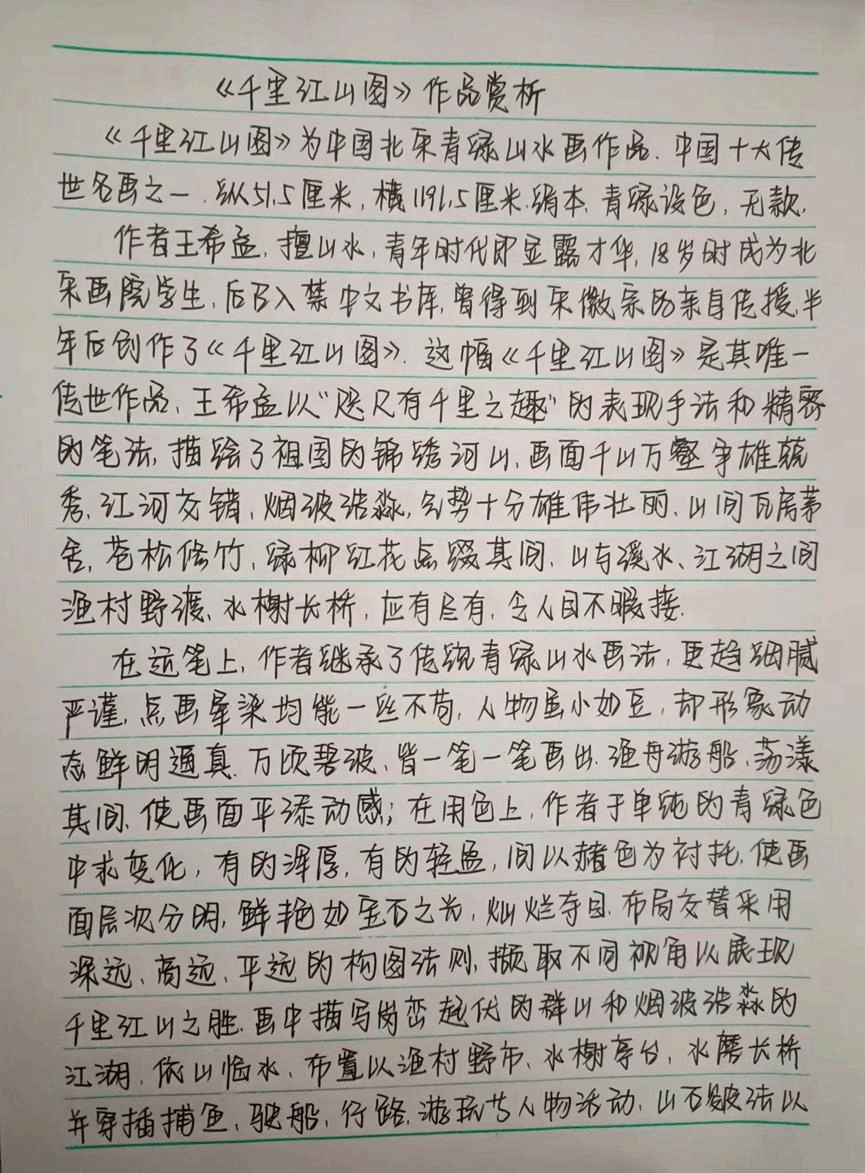 《千里江山图》作品赏析
《千里江山图》为中国北宋青绿山水画作品.中国十大传
世名画之一.纵51.5厘米,横1191.5厘米.绢本.青绿设色,无款.
作者王希孟,擅山水,青年时代即显露才华,18岁时成为北
宋画院学生,后召入禁中文书库,曾得到宋徽宗的亲自传授,半
年后创作了《千里江山图》.这幅《千里江山图》是其唯一
传世作品,王希孟以“咫尺有千里之趣”的表现手法和精密
的笔法,描绘了祖国的锦绣河山,画面千山万壑争雄竞
秀,江河交错,烟波浩淼,气势十分雄伟壮丽.山间瓦房茅
舍,苍松修竹,绿柳红花点缀其间.山与溪水、江湖之间
渔村野渡、水榭长桥,应有尽有,令人目不暇接.
在运笔上,作者继承了传统青绿山水画法,更趋细腻
严谨,点画晕染均能一丝不苟,人物虽小如豆,却形象动
态鲜明逼真.万顷碧波,皆一笔一笔画出.渔舟游船,荡漾
其间,使画面平添动感;在用色上,作者于单纯的青绿色
中求变化,有的浑厚,有的轻盈,间以赭色为衬托,使画
面层次分明,鲜艳如宝石之光,灿烂夺目.布局交替采用
深远、高远、平远的构图法则,撷取不同视角以展现
千里江山之胜.画中描写岗峦起伏的群山和烟波浩淼的
江湖.依山临水,布置以渔村野市、水榭亭台、水磨长桥
并穿插捕鱼、驶船、行路、游玩等人物活动.山石皴法以